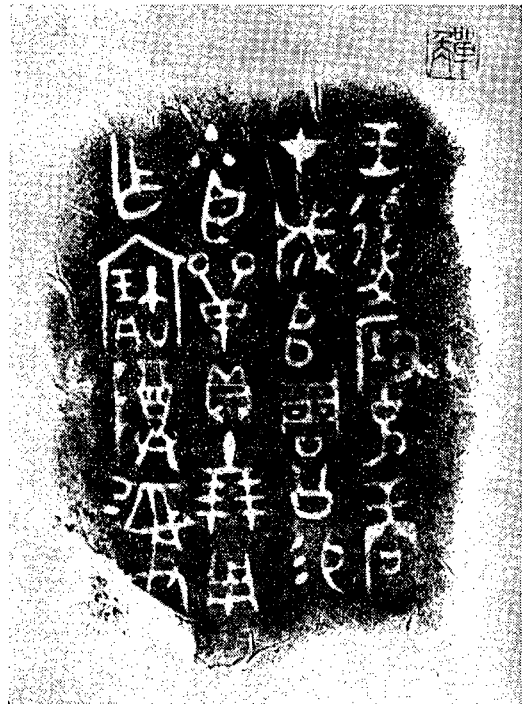 王後克商
才成𠂤周公易
小臣單貝十朋用
乍寶𬯚彝